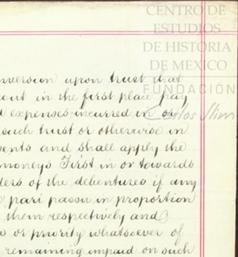 CENTRO DE
ESTUDIOS
DE HISTORIA
DE MEXICO
FUNDACIÓN
Carlos Slim
nversion upon trust that
out in the first place pay
d expenses incurred in or
such trust or otherwise in
vents and shall apply the
moneys First in or towards
ders of the debentures if any
pari passu in proportion
them respectively and
e or priority whatsoever of
remaining unpaid on such